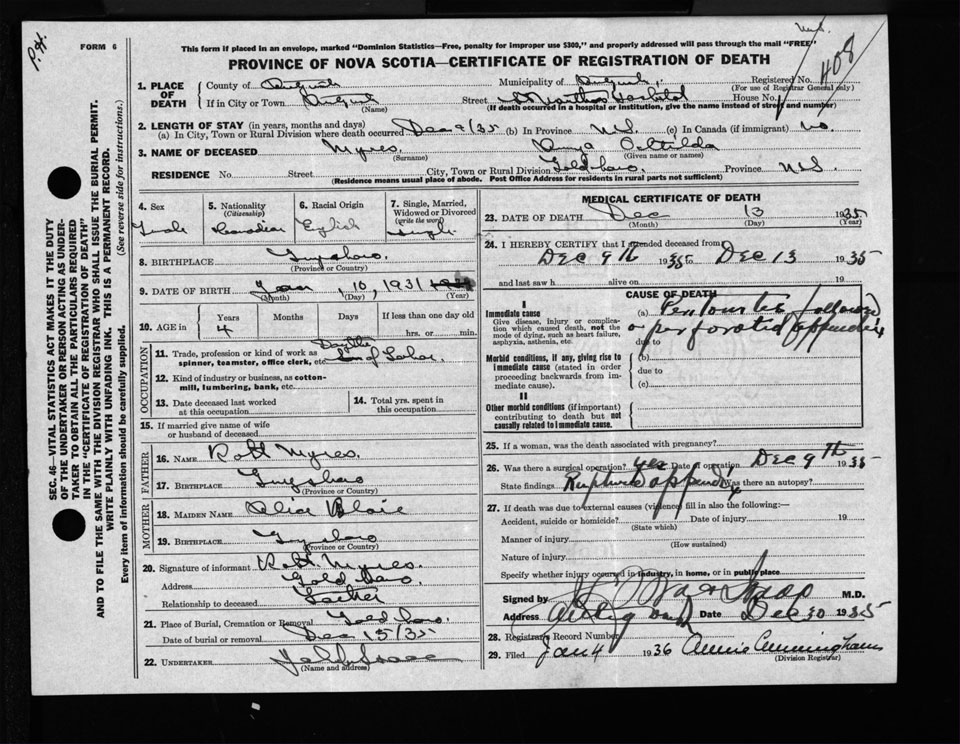 P.H.
FORM 6
This form if placed in an envelope, marked "Dominion Statistics—Free, penalty for improper use $300," and properly addressed will pass through the mail "FREE"
PROVINCE OF NOVA SCOTIA—CERTIFICATE OF REGISTRATION OF DEATH
408
1. PLACE OF DEATH
County of
Municipality of
Registered No.
(For use of Registrar General only)
If in City or Town
(Name)
Street St Marthas Hospital House No.
(If death occurred in a hospital or institution, give the name instead of street and number)
2. LENGTH OF STAY (in years, months and days)
(a) In City, Town or Rural Division where death occurred Dec 9/35 (b) In Province N.S. (c) In Canada (if immigrant) no
3. NAME OF DECEASED Myres
(Surname) (Given name or names)
RESIDENCE No. Street City, Town or Rural Division Goldboro Province N.S.
(Residence means usual place of abode. Post Office Address for residents in rural parts not sufficient)
SEC. 46—VITAL STATISTICS ACT MAKES IT THE DUTY
OF THE UNDERTAKER OR PERSON ACTING AS UNDER-
TAKER TO OBTAIN ALL THE PARTICULARS REQUIRED
IN THE "CERTIFICATE OF REGISTRATION OF DEATH"
AND TO FILE THE SAME WITH THE DIVISION REGISTRAR WHO SHALL ISSUE THE BURIAL PERMIT.
WRITE PLAINLY WITH UNFADING INK. THIS IS A PERMANENT RECORD.
Every item of information should be carefully supplied. (See reverse side for instructions.)
4. Sex
Female
5. Nationality
(Citizenship)
Canadian
6. Racial Origin
English
7. Single, Married, Widowed or Divorced
(write the word)
Single
8. BIRTHPLACE Guysboro
(Province or Country)
9. DATE OF BIRTH Jan 10, 1931
(Month) (Day) (Year)
10. AGE in
Years Months Days If less than one day old
4 hrs. or min.
OCCUPATION
11. Trade, profession or kind of work as
spinner, teamster, office clerk, etc.
12. Kind of industry or business, as cotton-
mill, lumbering, bank, etc.
13. Date deceased last worked
at this occupation
14. Total yrs. spent in
this occupation
15. If married give name of wife
or husband of deceased
FATHER
16. Name Robt Myres
17. Birthplace Guysboro
(Province or Country)
MOTHER
18. MAIDEN NAME Alice
19. BIRTHPLACE Guysboro
(Province or Country)
20. Signature of informant Robt Myres
Address Goldboro
Relationship to deceased Father
21. Place of Burial, Cremation or Removal Goldboro
Date of burial or removal Dec 15/35
22. UNDERTAKER
(Name and address)
MEDICAL CERTIFICATE OF DEATH
23. DATE OF DEATH Dec 13 1935
(Month) (Day) (Year)
24. I HEREBY CERTIFY that I attended deceased from
Dec 9th 1935 to Dec 13 1935
and last saw h alive on 19
CAUSE OF DEATH
I
Immediate cause
Give disease, injury or compli-
cation which caused death, not the
mode of dying, such as heart failure,
asphyxia, asthenia, etc.
(a) followed
due to perforated appendix
Morbid conditions, if any, giving rise to
immediate cause (stated in order
proceeding backwards from im-
mediate cause).
(b)
due to
(c)
II
Other morbid conditions (if important)
contributing to death but not
causally related to immediate cause.
25. If a woman, was the death associated with pregnancy?
26. Was there a surgical operation? yes Date of operation Dec 9th 1935
State findings Ruptured appendix Was there an autopsy?
27. If death was due to external causes (violence) fill in also the following:—
Accident, suicide or homicide? Date of injury 19
(State which)
Manner of injury
(How sustained)
Nature of injury
Specify whether injury occurred in industry, in home, or in public place
Signed by M.D.
Address Date Dec 30 1935
28. Registrar Record Number
29. Filed Jan 4 1936 Annie Cunningham
(Division Registrar)